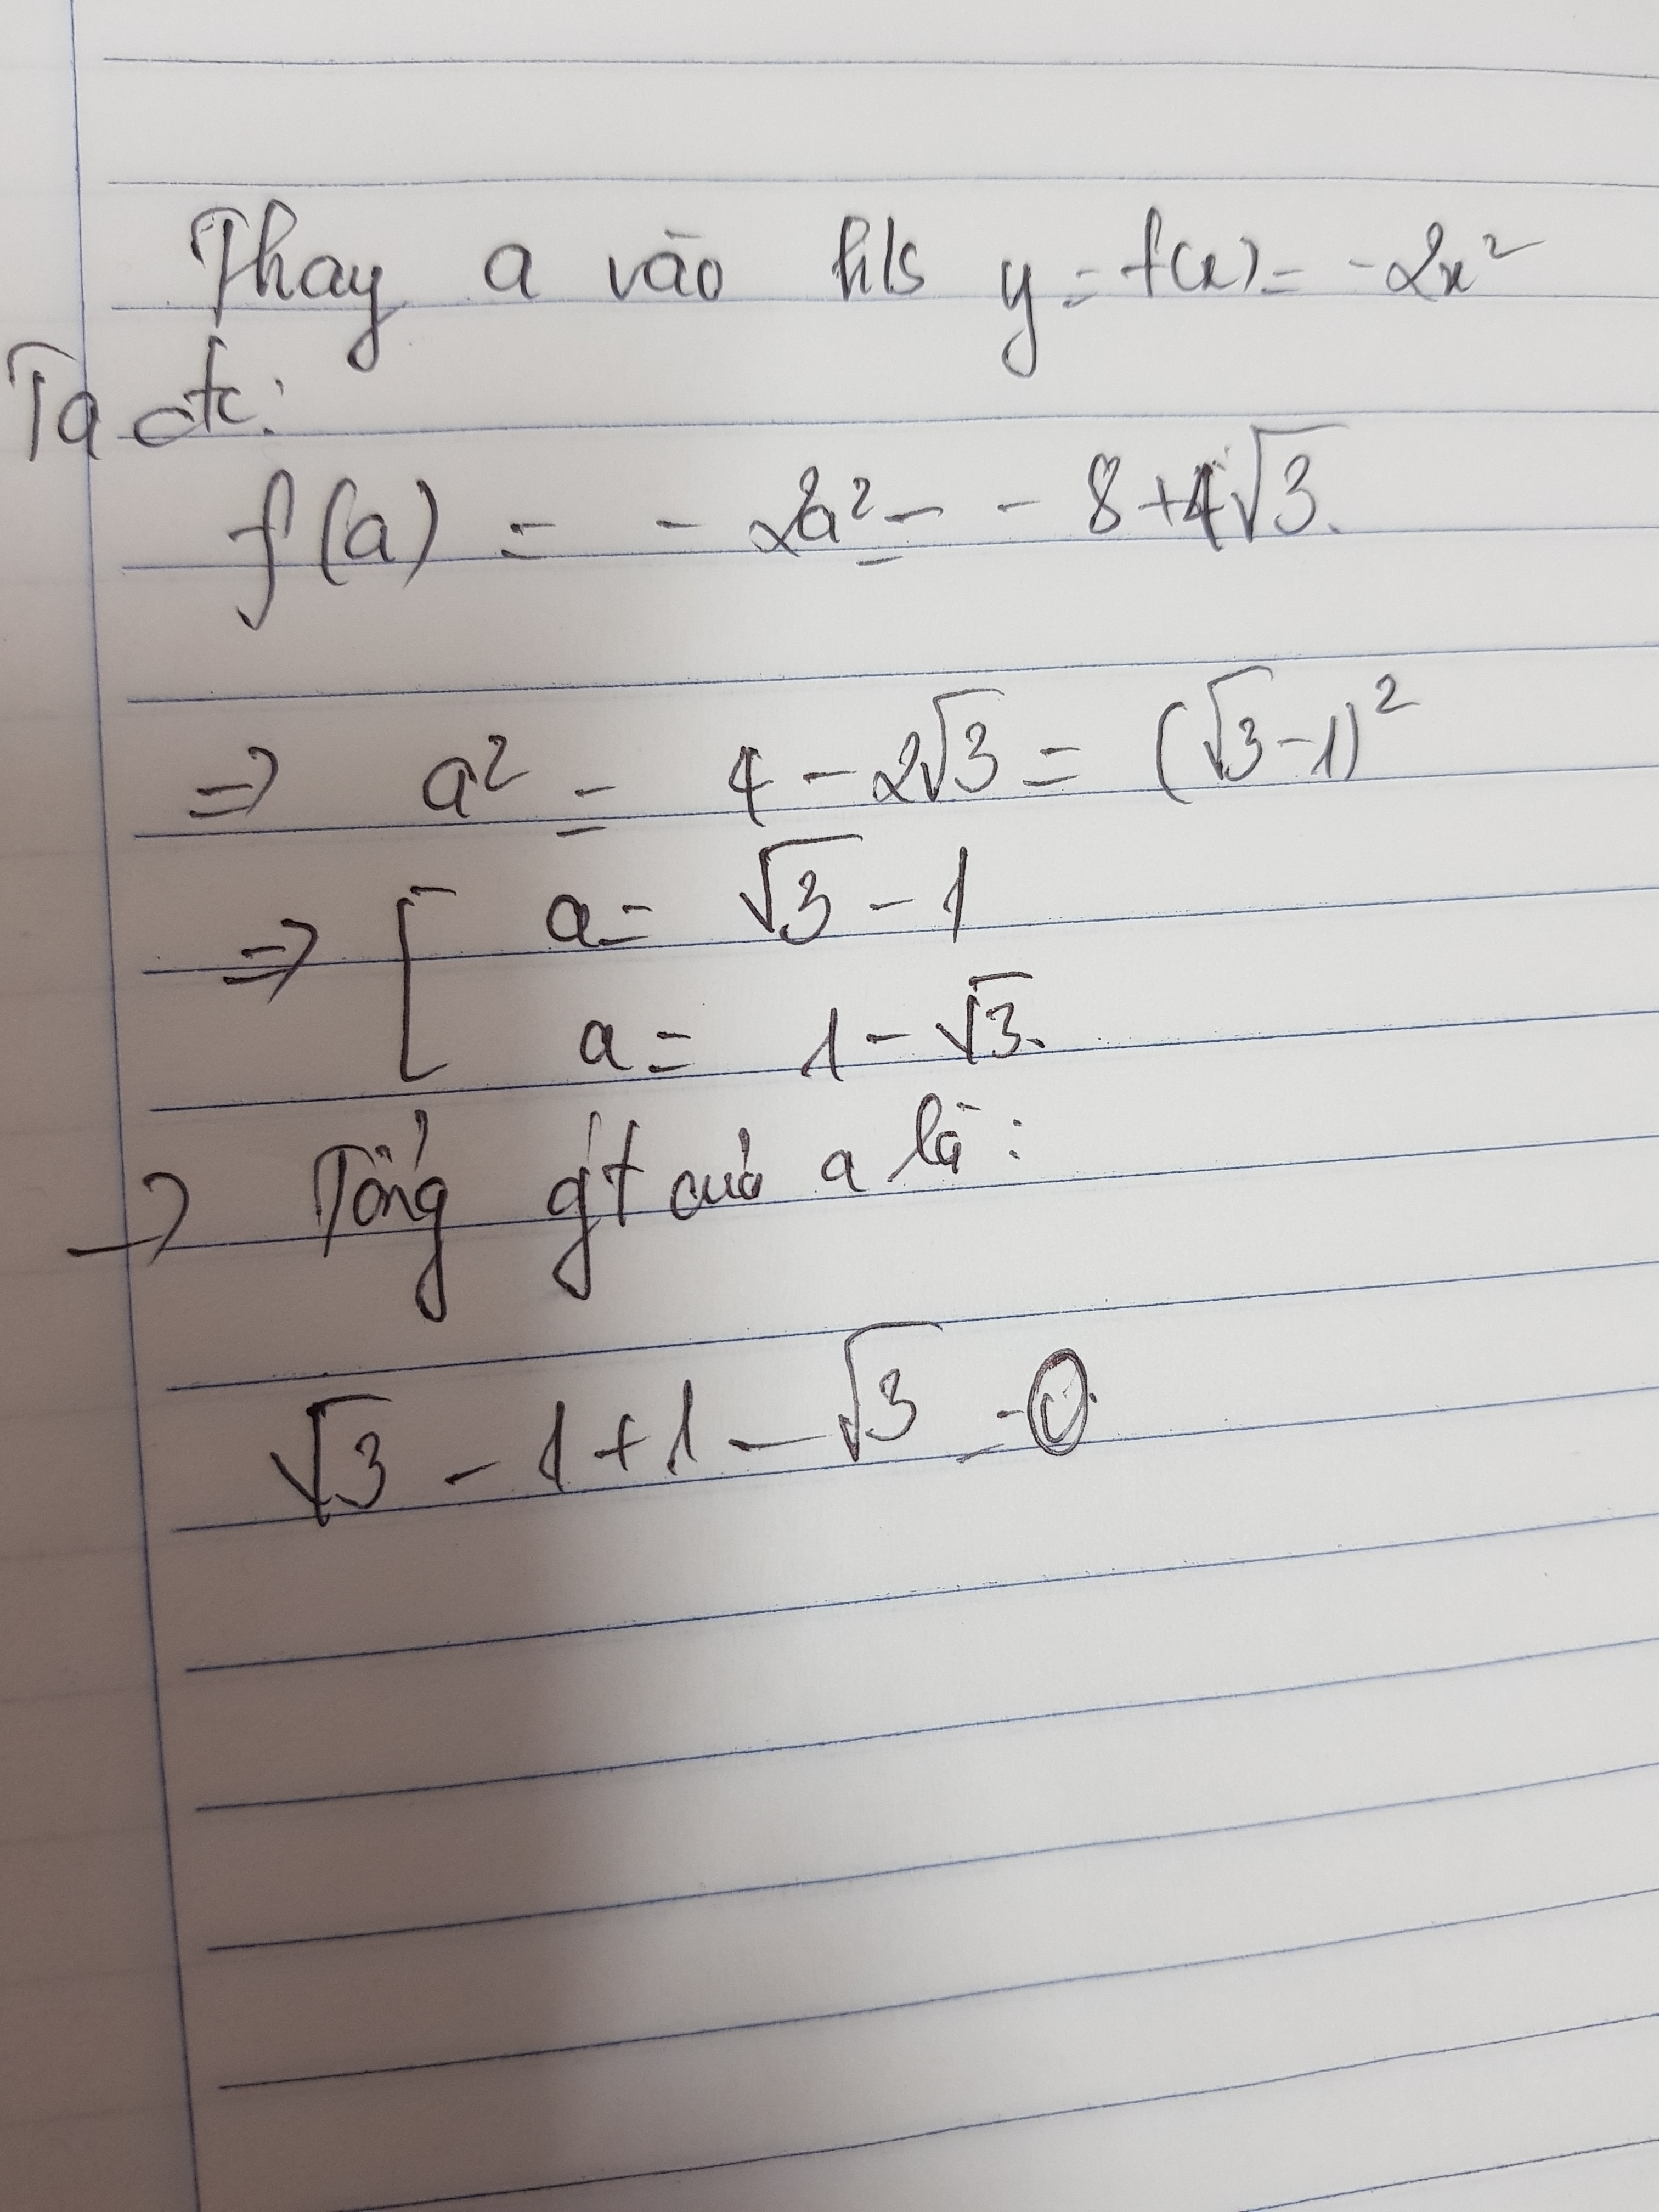 Thay a vào h/s y = f(x) = -2x²
Ta đc:
f(a) = - 2a² = - 8 + 4√3.
=> a² = 4 - 2√3 = (√3 - 1)²
=> [ a = √3 - 1
a = 1 - √3.
-> Tổng gt của a là:
√3 - 1 + 1 - √3 = 0.